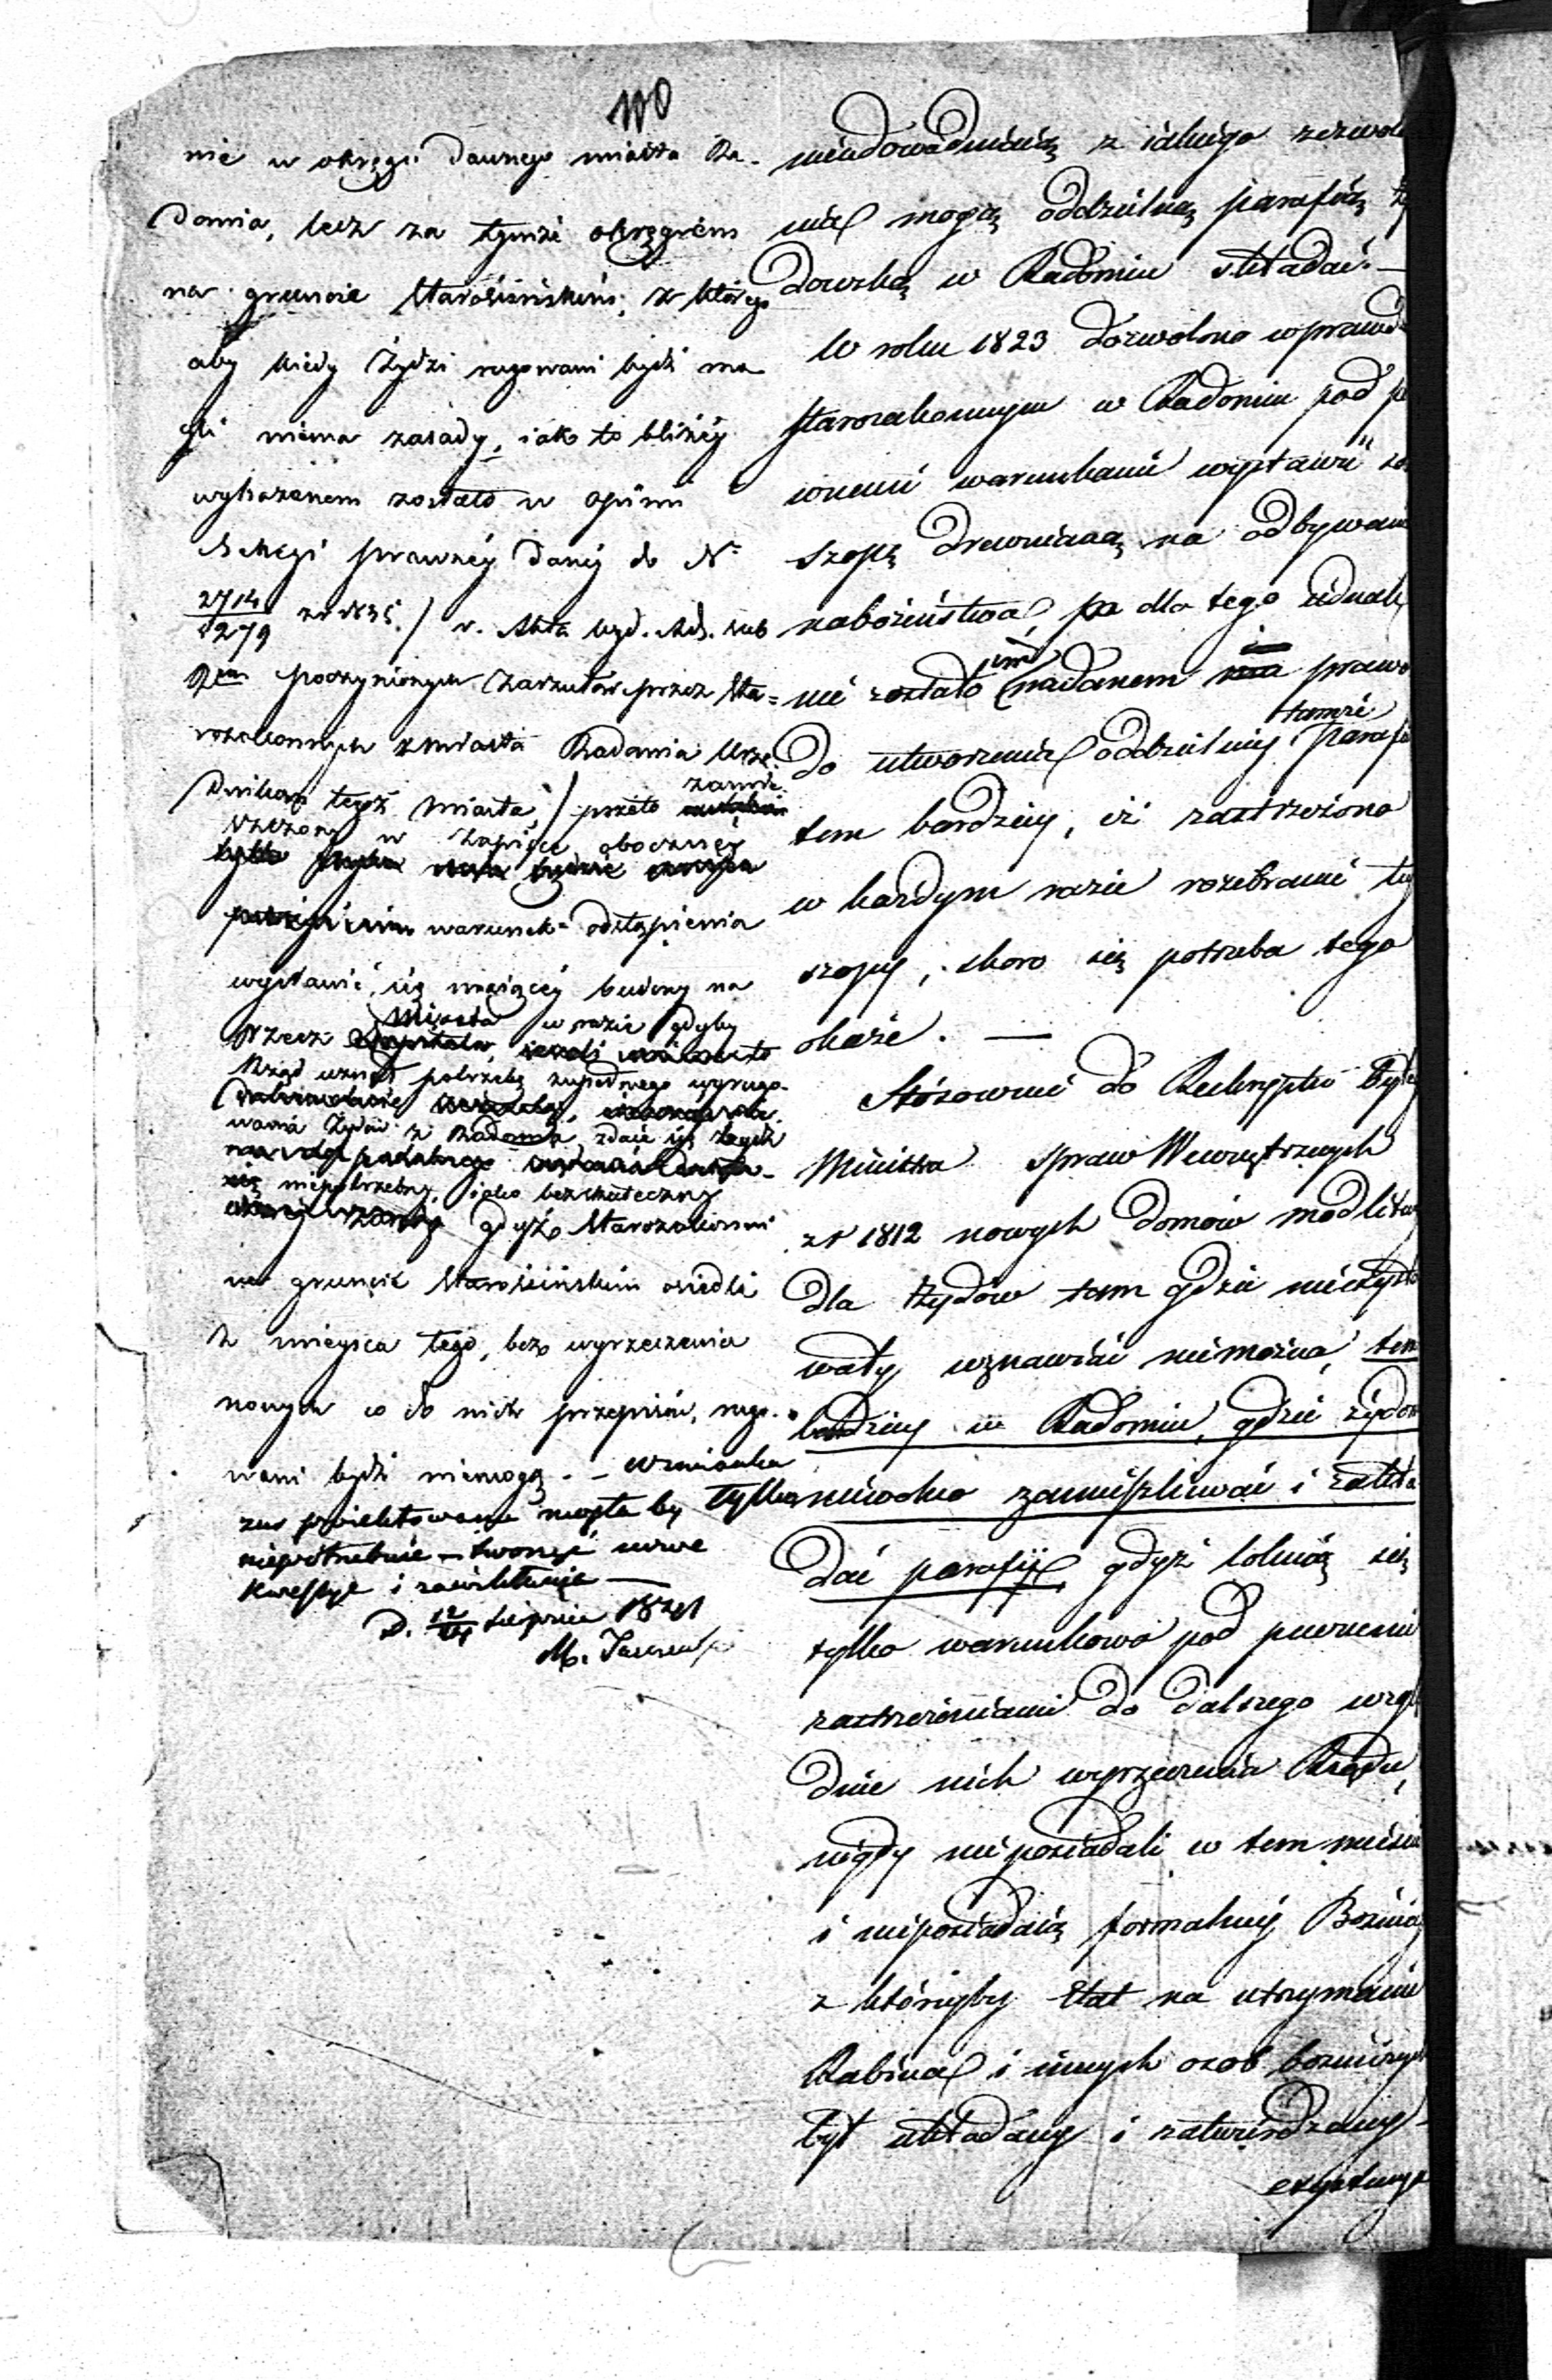 nie w okręgu dawnego miasta Ra-
domia, lecz za tymże okręgiem
na gruncie Starościńskim, z którego
aby kiedy Żydzi rugowani bydź mo
gli niema zasady, iako to bliżéy
wykazanem zostało w opinii
Sekcyi prawnéy danéy do Nr
2714/1279 z r 1835./ v. Akta Wyd. Ad. sub
poczynionych zarzutów przez Sta-
rozakonnych z miasta Radomia Urzę
dnikom tegoż Miasta,/ przeto zamie
szczony w zapisce obocznéy
warunek odstąpienia
wystawić się maiącéy budowy na
rzecz Miasta w razie gdyby
Rząd uznał potrzebę zupełnego wyrugo-
wania Żydów z Radomia, zdaie się bydź
niepotrzebny, iako bezskuteczny
gdyż Starozakonni
na gruncie Starościńskim osiedli
z mieysca tego, bez wyrzeczenia
nowych co do nich przepisów, rugo-
wani bydź niemogą. – wzmianka
zaś proiektowana mogła by tylko
niepotrzebnie tworzyć nowe
kwestye i zawikłania —
D. 12/24 Sierpnia 1841
M.
nieudowadniaią z iakiego zezwole
nia mogą oddzielną parafią ży
dowską w Radomiu składać. —
W roku 1823 dozwolono wprawd
starozakonnym w Radomiu pod pe
wnemi warunkami wystawić
szopę drewnianą na odbywanie
nabożeństwa, dla tego iednak
nie zostało im nadanem prawo
do utworzenia oddzielnéy tamże Parafi
tem bardziéy, iż zastrzeżono
w każdym razie rozebranie téy
szopy, skoro się potrzeba tego
okaże. —
Stósownie do Reskryptu Byłe
Ministra Spraw Wewnętrznych
z r 1812 nowych domów modlitwy
dla Żydów tam gdzie nieexysto
wały wznawiać niemożna, tem
bardziéy w Radomiu, gdzie żydom
niewolno zamieszkiwać i zakła
dać parafii, gdyż tolnią się
tylko warunkowo pod pewnemi
zastrzeżeniami do dalszego wzglę
dnie nich wyrzeczenia Rządu,
nigdy nieposiadali w tem mieście
i nieposiadaią formalnéy Bożnicy
z któréyby Etat na utrzymanie
Rabina i innych osób bożniczych
był układany i zatwierdzany